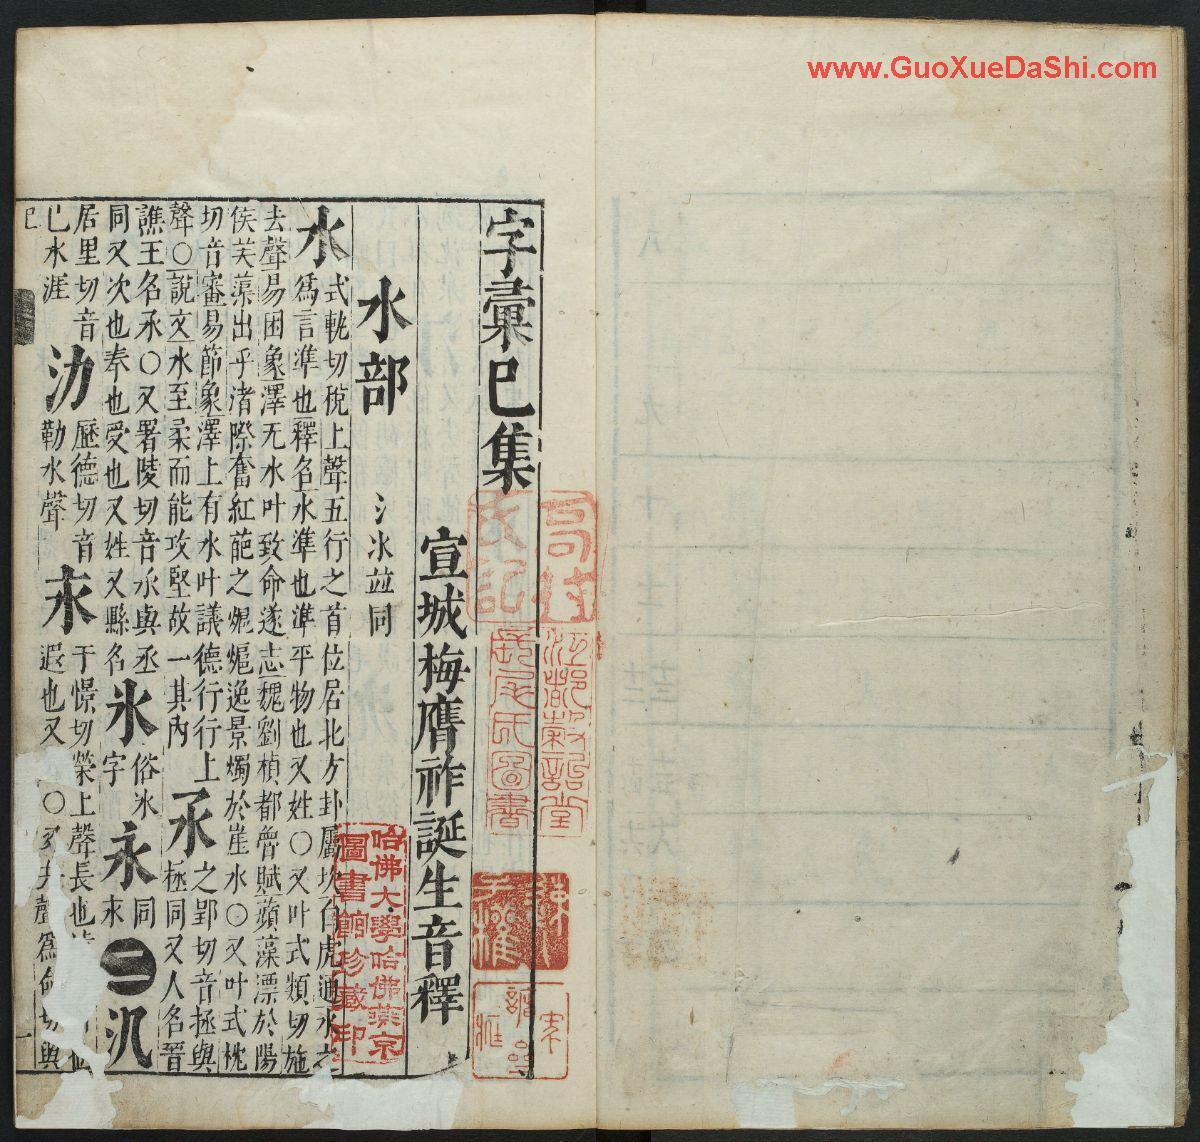 www.GuoXueDaShi.com
字彙巳集
宣城梅膺祚誕生音釋
水部
氵氺並同
水
式軌切稅上聲五行之首位居北方卦屬坎白虎通水之
爲言準也釋名水準也準平物也又姓○又叶式類切施
去聲易困象澤无水叶致命遂志魏劉楨都魯賦蘋藻漂於陽
侯芙蕖出乎渚際奮紅葩之𤈷𤈷逸景燭於崖水○又叶式枕
切音審易節象澤上有水叶議德行行上
聲○說文水至柔而能攻堅故一其內
氶
之郢切音拯與
極同又人名晉
譙王名氶○又署陵切音丞與丞
同又次也奉也受也又姓又縣名
氷
俗冰
字
永
同
來
二
氿
居里切音
巳水涯
氻
歷德切音
勒水聲
永
于憬切榮上聲長也
遐也又
○又去聲爲命切與
哈佛大學哈佛燕京
圖書館珍藏印